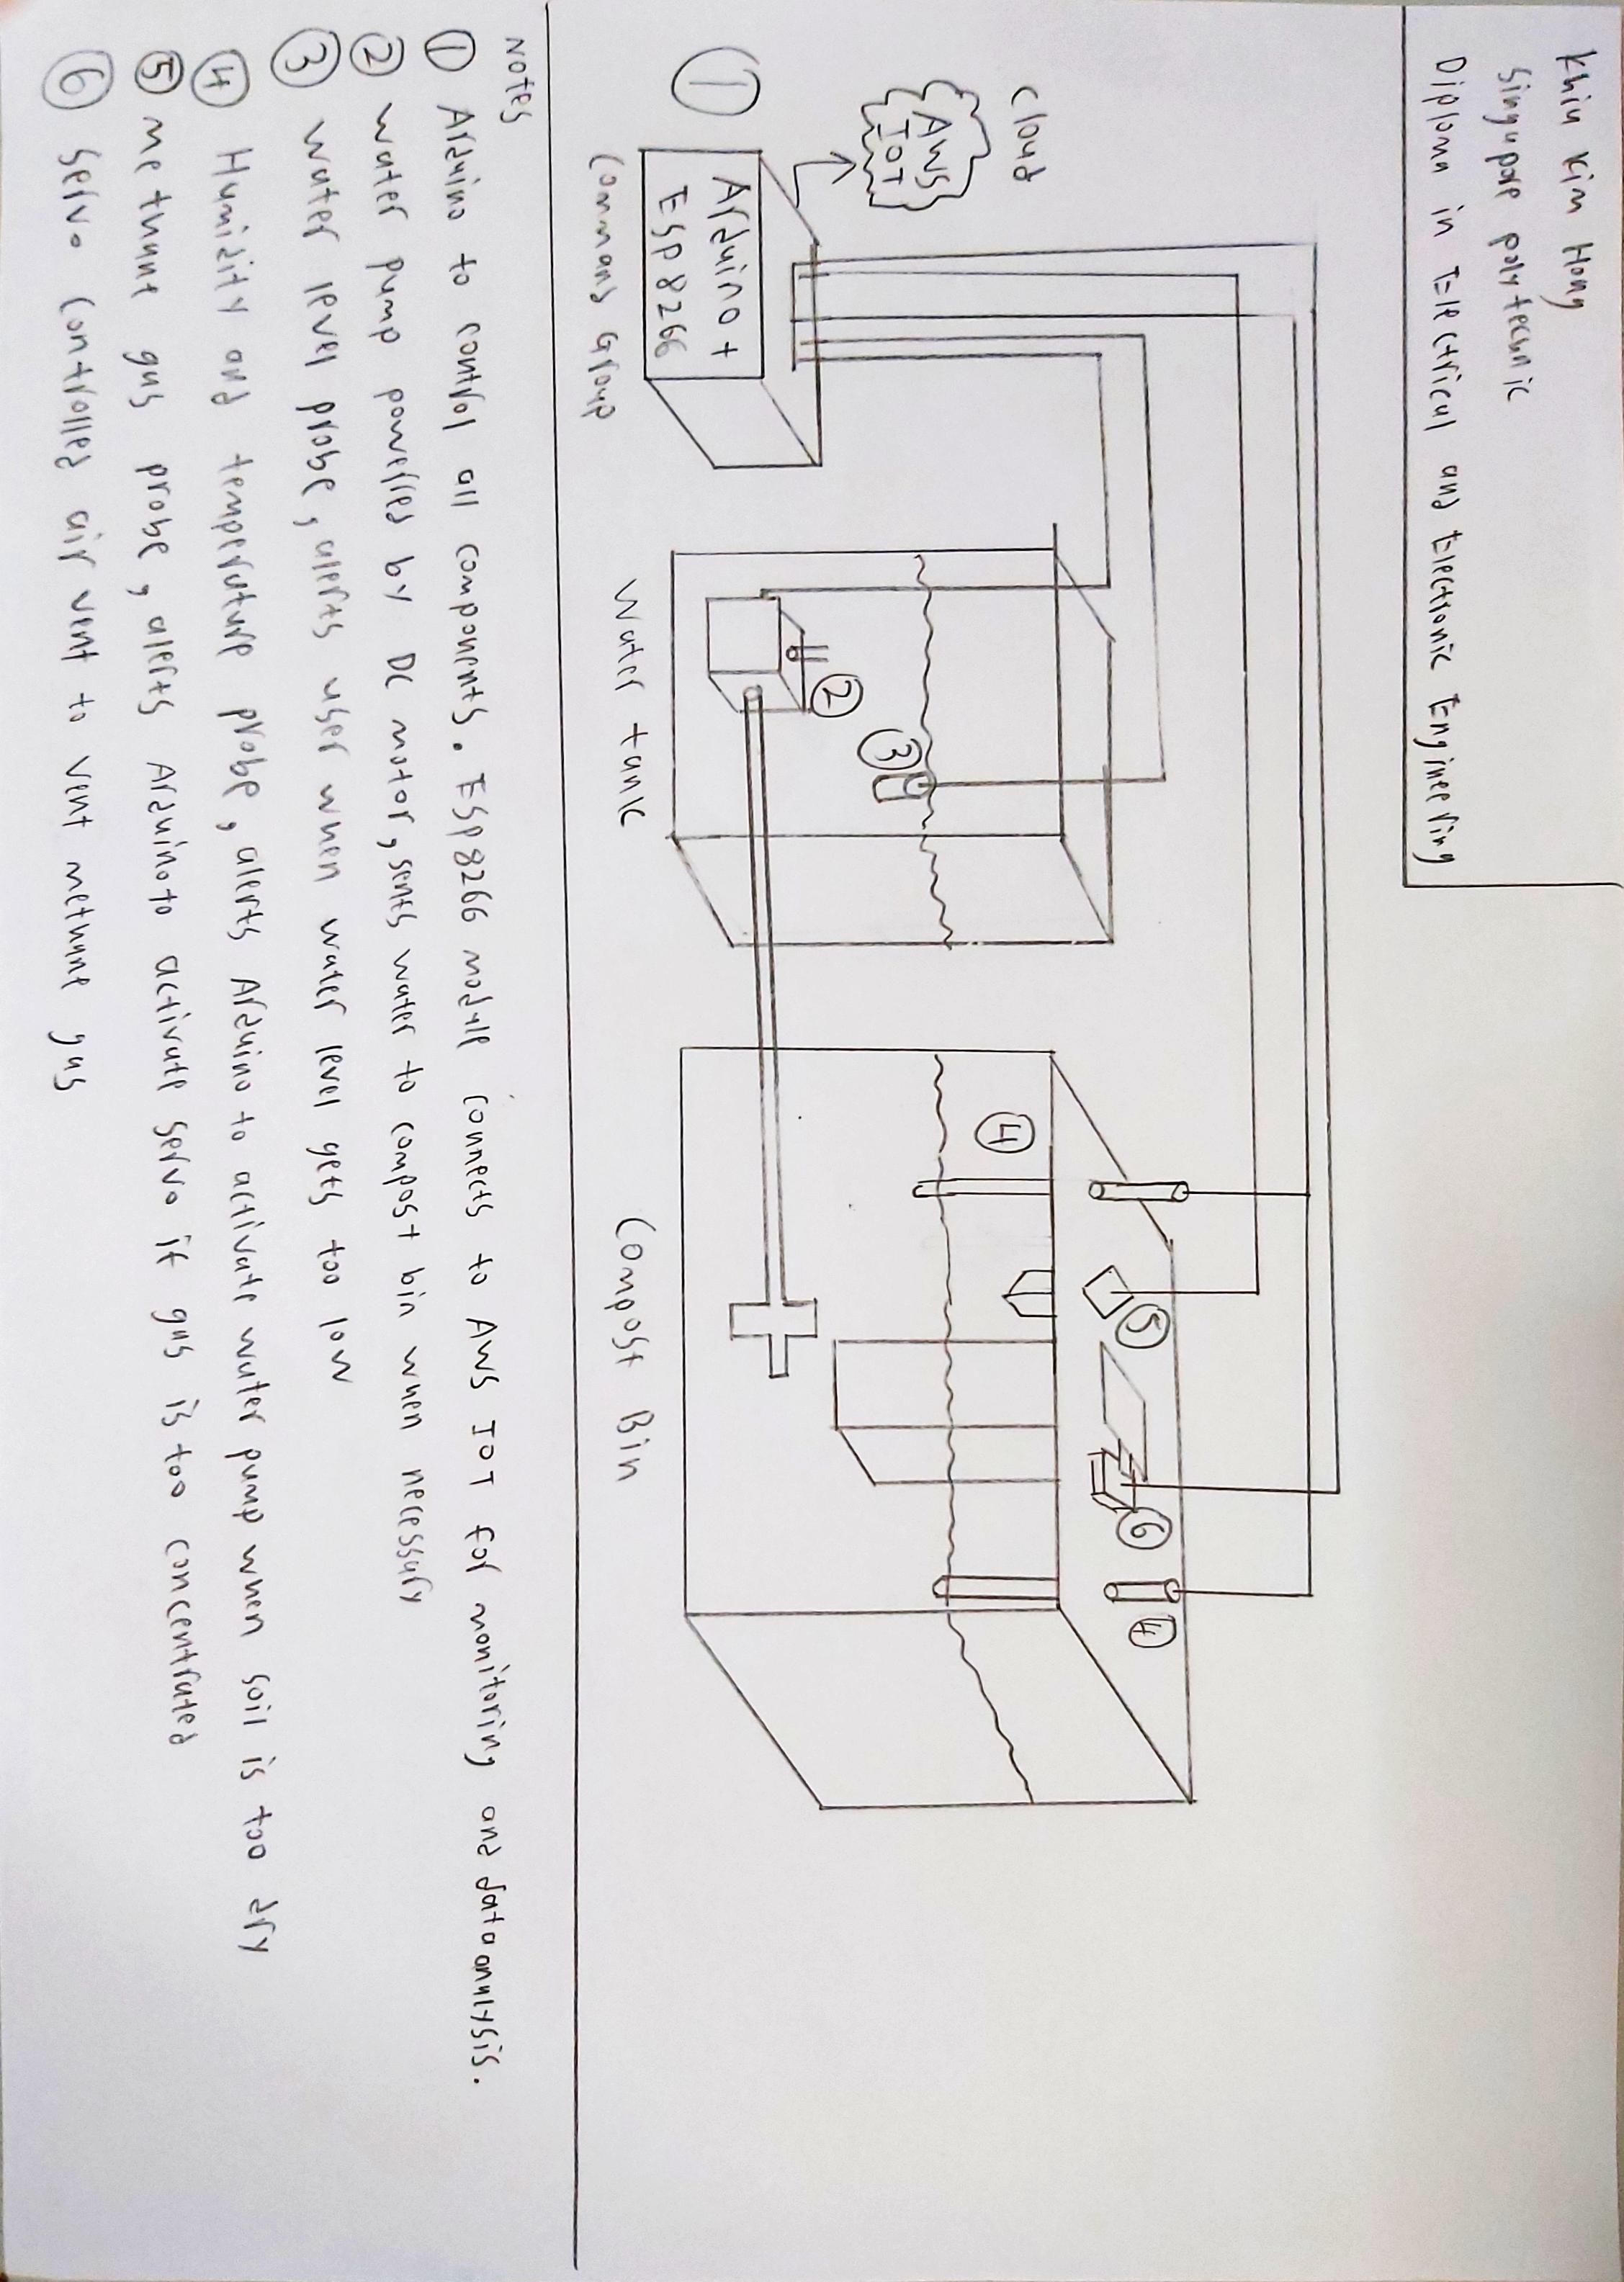 Khiu Kim Hong
Singapore polytechnic
Diploma in Electrical and Electronic Engineering
5
6
4
Cloud
4
AWS
IOT
3
2
1
Arduino +
ESP8266
Water tank
Compost Bin
Command Group
Notes
1 Arduino to control all components. ESP8266 module connects to AWS IOT for monitoring and data analysis.
2 water pump powerred by DC motor, sents water to compost bin when necessary
3 water level probe, alerts user when water level gets too low
4 Humidity and temperature probe, alerts Arduino to activate water pump when soil is too dry
5 methane gas probe, alerts Arduino to activate servo if gas is too concentrated
6 Servo controlled air vent to vent methane gas